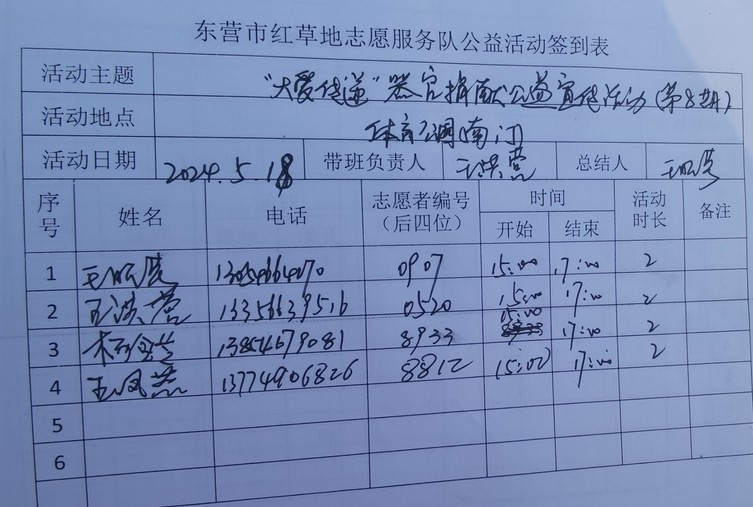 东营市红草地志愿服务队公益活动签到表
活动主题 “大爱传递”器官捐献公益宣传活动(第8期)
活动地点 体育公园(南门)
活动日期 2024.5.18 带班负责人 王洪营 总结人
序号 姓名 电话 志愿者编号(后四位) 时间 活动时长 备注
开始 结束
1 13054664070 0907 15:00 17:00 2
2 王洪营 13356639516 0520 15:00 17:00 2
3 13854679081 8933 15:00 17:00 2
4 王凤燕 13774906826 8812 15:00 17:00 2
5
6